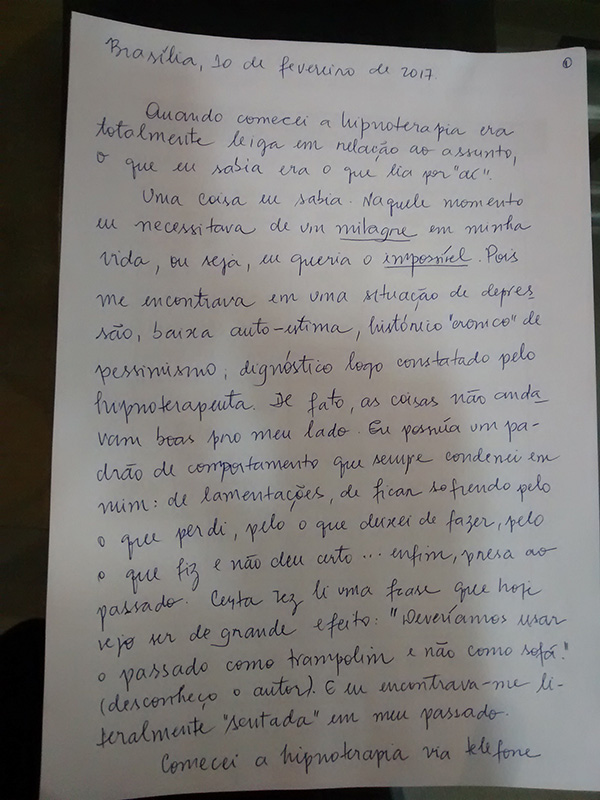 Brasília, 10 de fevereiro de 2017.
1
Quando comecei a hipnoterapia era
totalmente leiga em relação ao assunto,
o que eu sabia era o que lia por "aí".
Uma coisa eu sabia. Naquele momento
eu necessitava de um milagre em minha
vida, ou seja, eu queria o impossível. Pois
me encontrava em uma situação de depres
são, baixa auto-estima, histórico "crônico" de
pessimismo, dignóstico logo constatado pelo
hipnoterapeuta. De fato, as coisas não anda_
vam boas pro meu lado. Eu possuía um pa-
drão de comportamento que sempre condenei em
mim: de lamentações, de ficar sofrendo pelo
o que perdi, pelo o que deixei de fazer, pelo
o que fiz e não deu certo... enfim, presa ao
passado. Certa vez li uma frase que hoje
vejo ser de grande efeito: "Deveríamos usar
o passado como trampolim e não como sofá."
(desconheço o autor). E eu encontrava-me li-
teralmente "sentada" em meu passado.
Comecei a hipnoterapia via telefone